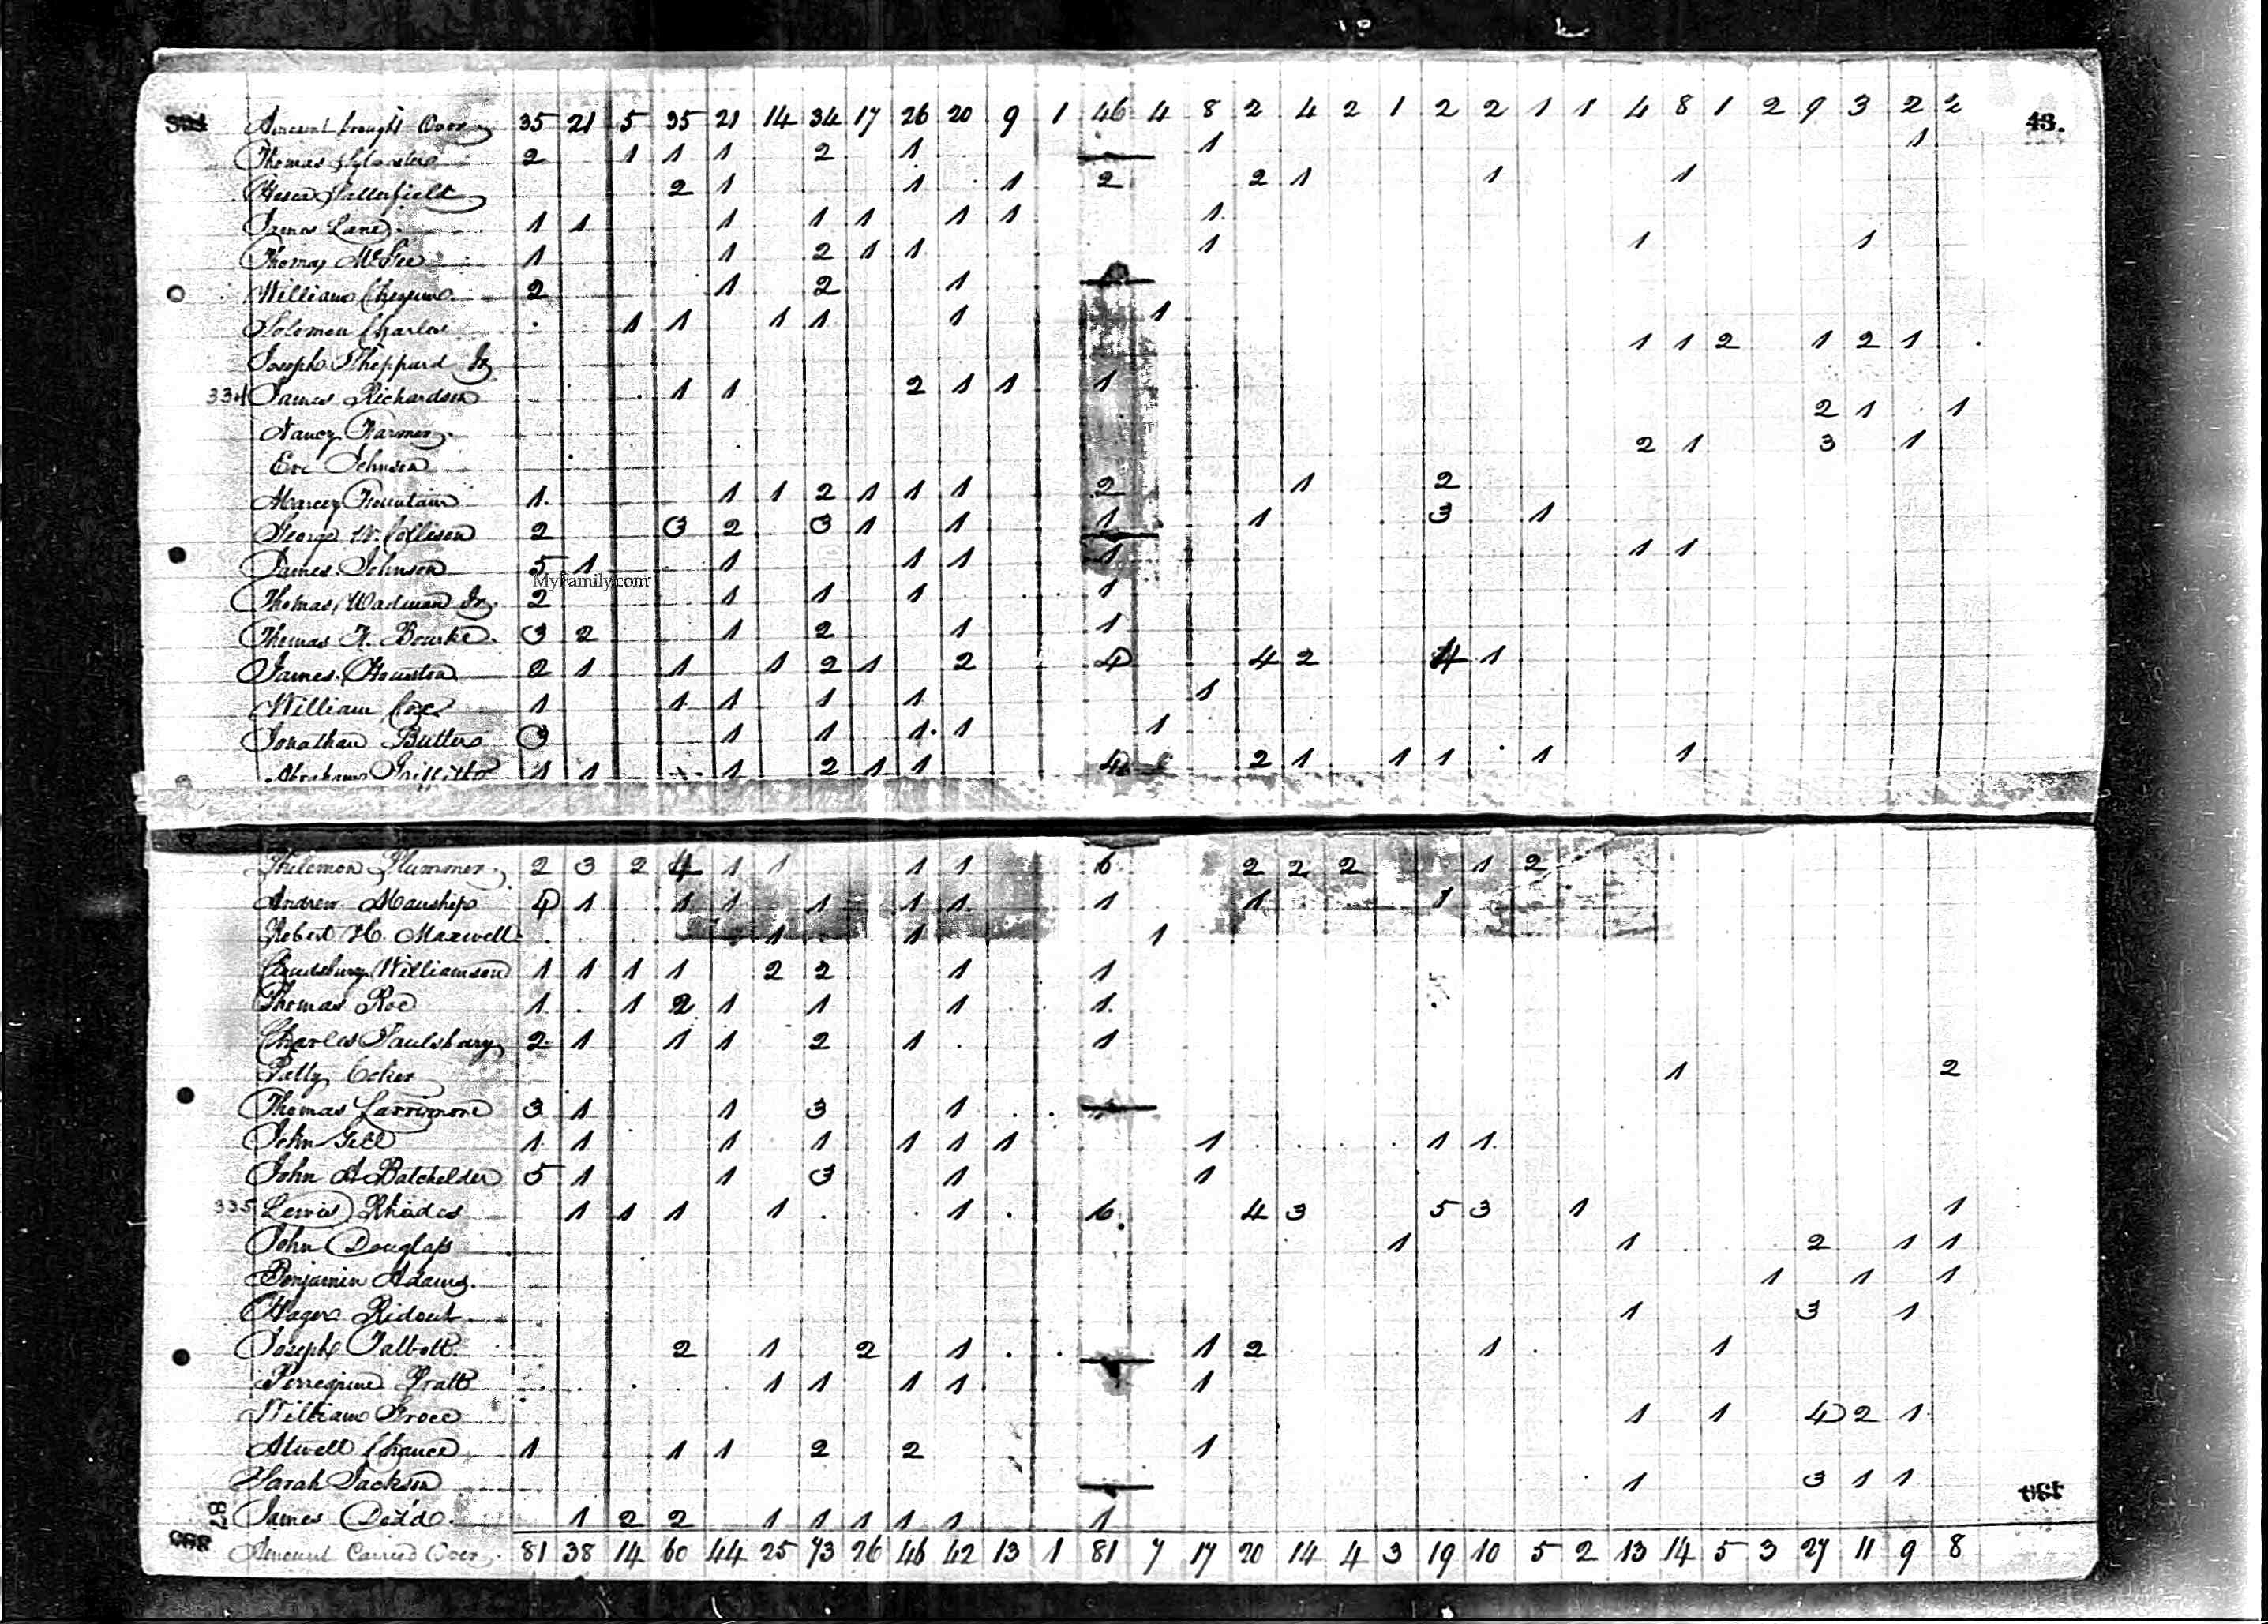 Amount brought Over 35 21 5 35 21 14 34 17 26 20 9 1 46 4 8 2 4 2 1 2 2 1 1 4 8 1 2 9 3 2 2 43.
Thomas 2 1 1 1 2 1 1 1
Satterfield 2 1 1 1 2 2 1 1 1
James Lane 1 1 1 1 1 1 1 1
Thomas McGee 1 1 2 1 1 1 1 1
William 2 1 2 1
Solomon Charles 1 1 1 1 1 1
Joseph Sheppard Jr 1 1 2 1 2 1
334 James Richardson 1 1 2 1 1 1
Nancy Farmer 2 1 1
Johnson 2 1 3 1
Marcey Fountain 1 1 1 2 1 1 1 2 1 2
George W. Collison 2 3 2 3 1 1 1 1 3 1
James Johnson 5 1 1 1 1 1 1 1
MyFamily.com
Thomas Wadman Jr. 2 1 1 1 1
Thomas H. Bourke 3 2 1 2 1 1
James Houston 2 1 1 1 2 1 2 4 4 2 4 1
William Cox 1 1 1 1 1 1
Jonathan Butler 3 1 1 1 1 1
Abraham Griffith 1 1 1 2 1 1 4 2 1 1 1 1 1
Philemon Plummer 2 3 2 4 1 1 1 1 6 2 2 2 1 2
Andrew Manship 4 1 1 1 1 1 1 1 1 1
Robert H. Maxwell 1 1 1
Williamson 1 1 1 1 2 2 1 1
Thomas Roe 1 1 2 1 1 1 1
Charles Saulsbury 2 1 1 1 2 1 1
Patty Coker 1 2
Thomas Larrimore 3 1 1 3 1
John Gill 1 1 1 1 1 1 1 1 1 1
John A Batchelder 5 1 1 3 1 1
335 Lewis Rhades 1 1 1 1 1 6 4 3 5 3 1 1
John Douglass 1 1 2 1 1
Benjamin Adams 1 1 1
Hager Ridout 1 3 1
Joseph Talbott 2 1 2 1 1 2 1 1
Perregrine Pratt 1 1 1 1 1
William 1 1 4 2 1
Atwell Chance 1 1 1 2 2 1
Sarah Jackson 1 3 1 1
87 James Dodd 1 2 2 1 1 1 1 1 1
Amount Carried Over 81 38 14 60 44 25 73 26 46 42 13 1 81 7 17 20 14 4 3 19 10 5 2 13 14 5 3 27 11 9 8